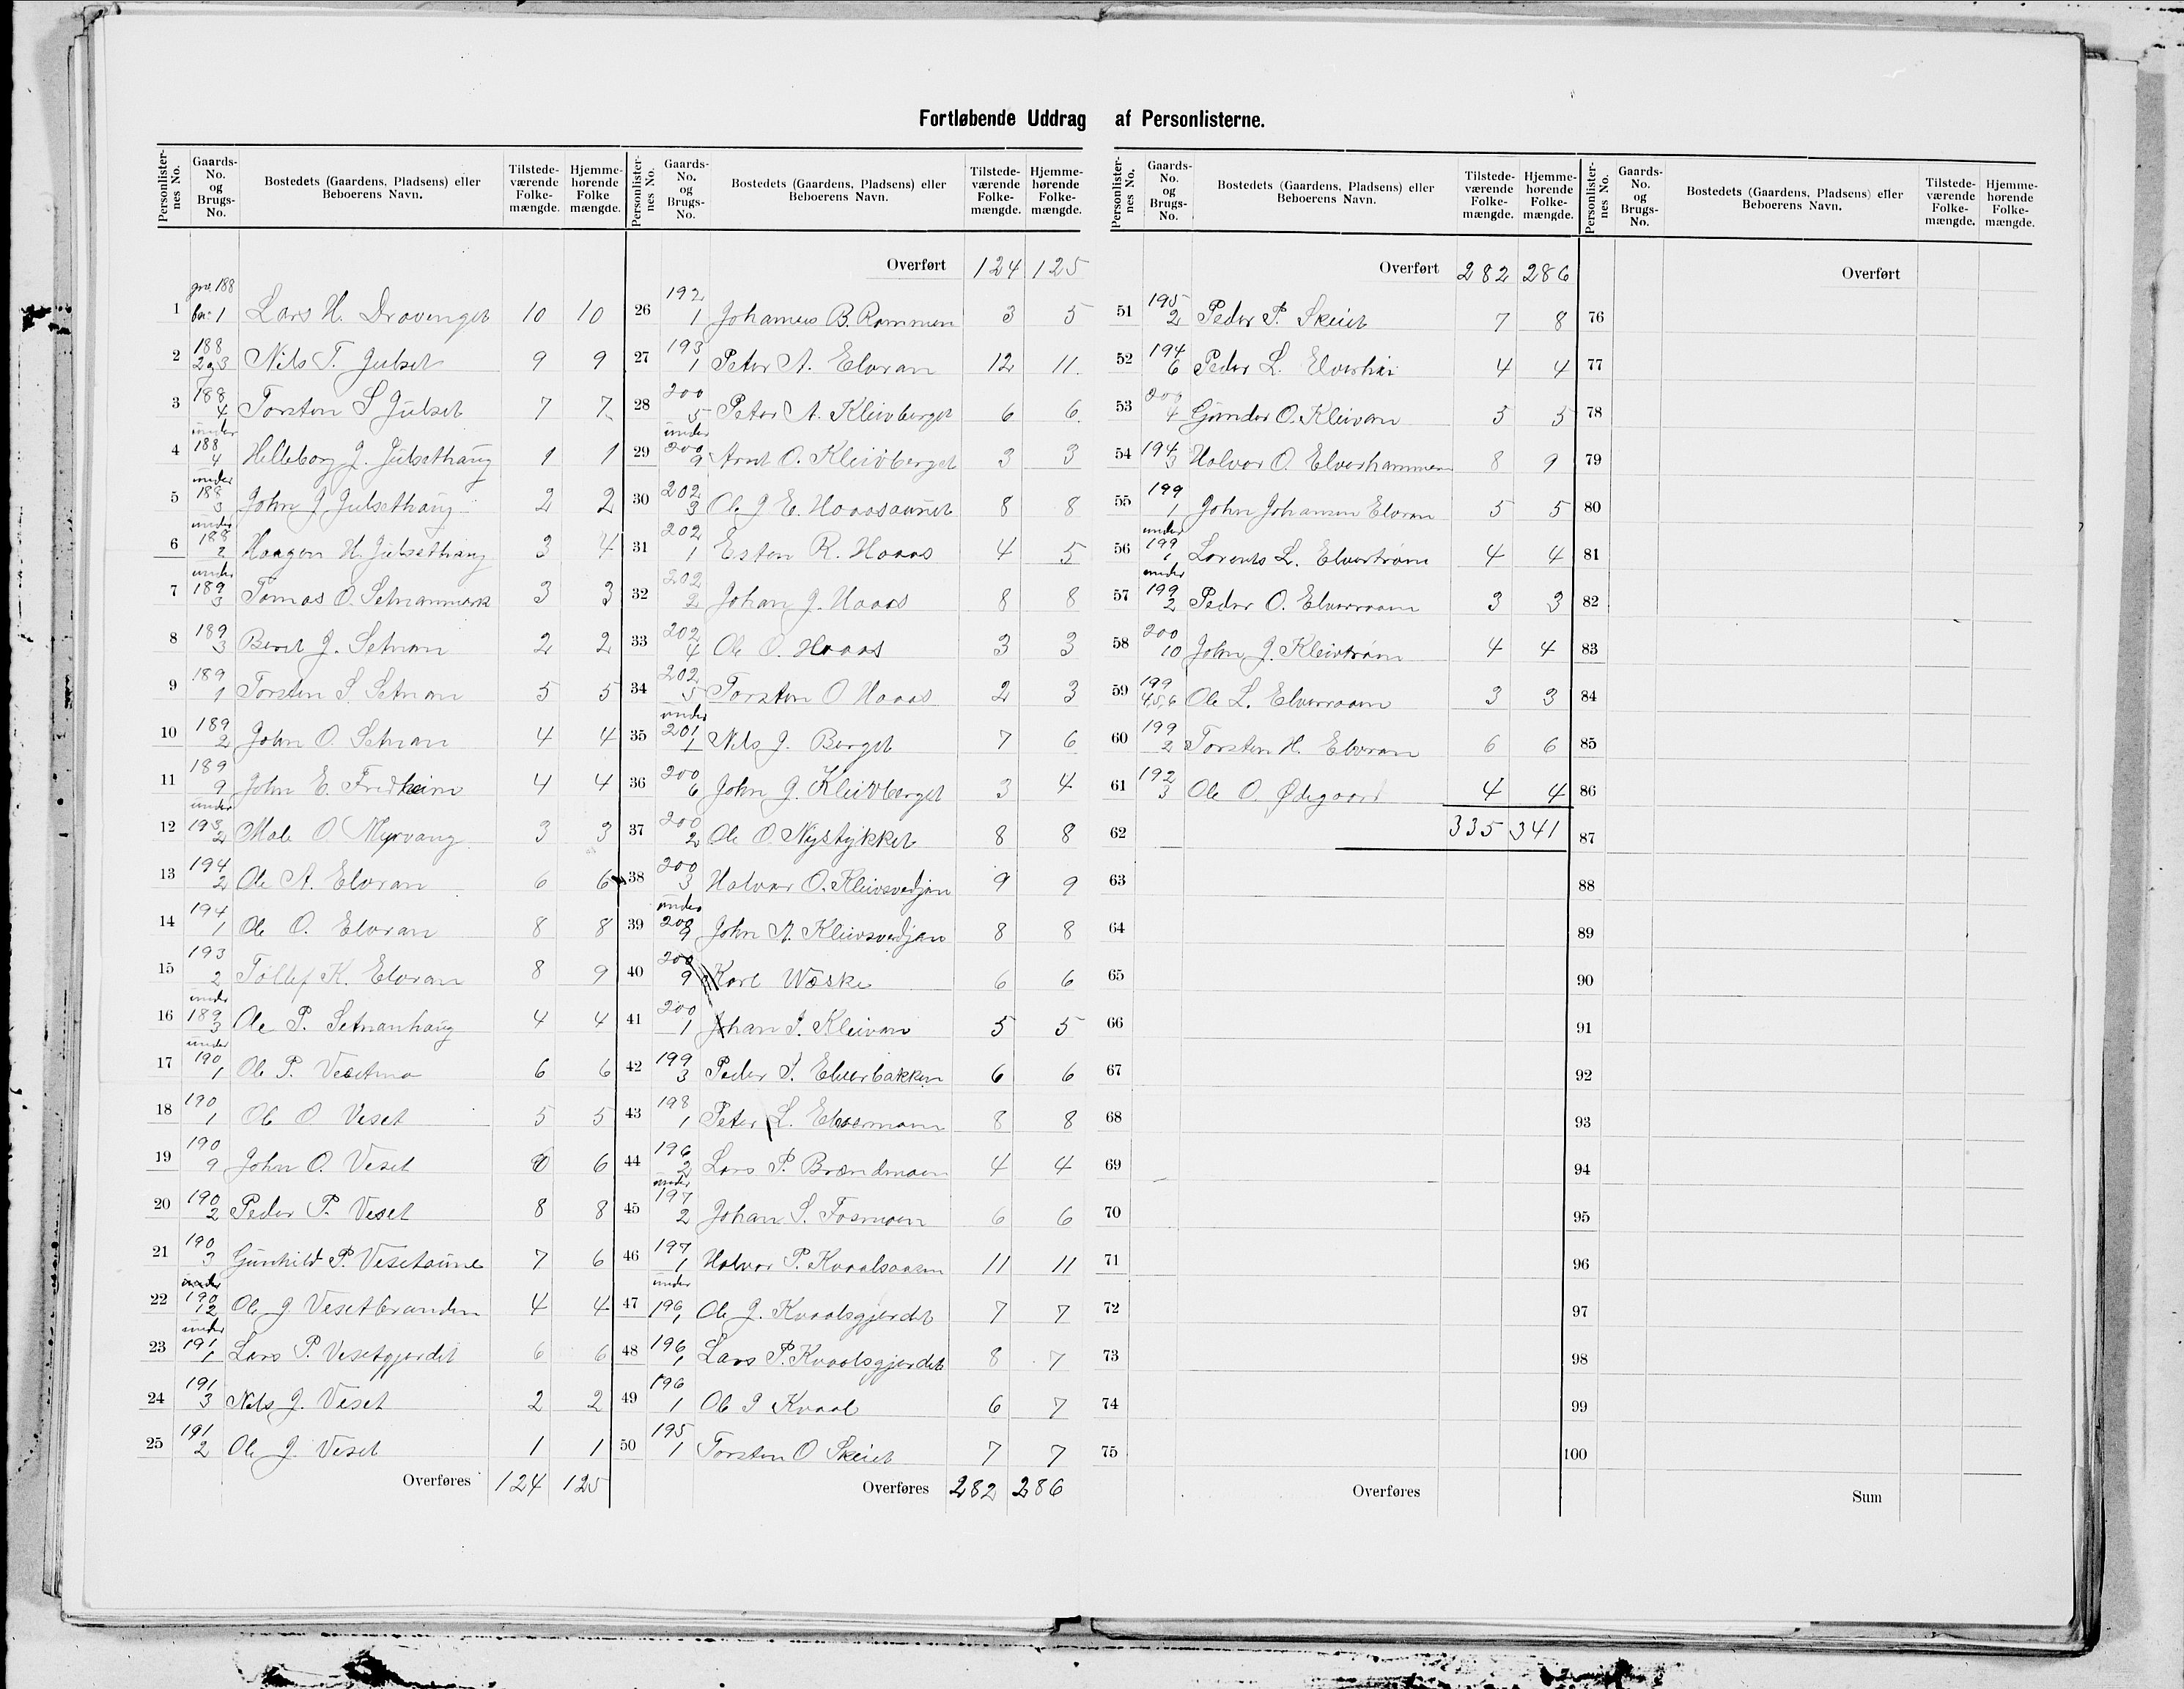 Fortløbende Uddrag af Personlisterne.
Personlister-nes No. Gaards-No. og Brugs-No. Bostedets (Gaardens, Pladsens) eller Beboerens Navn. Tilstede-værende Folke-mængde. Hjemme-hørende Folke mængde.
1 gno. 188 bno 1 Lars H. Dravenget 10 10
2 188 2 og 3 Nils T. Julset 9 9
3 188 4 Torsten S Julset 7 7
4 under 188 4 Helleborg J. Julsethaug 1 1
5 under 188 3 John J Julsethaug 2 2
6 under 188 2 Haagen H. Julsethaug 3 4
7 under 189 3 Tomas O. Setnanmark 3 3
8 189 3 Berit J. Setnan 2 2
9 189 1 Torsten S. Setnan 5 5
10 189 2 John O. Setnan 4 4
11 189 9 John E. Fredheim 4 4
12 under 193 2 Male O. Myrvang 3 3
13 194 2 Ole A. Elvran 6 6
14 194 1 Ole O. Elvran 8 8
15 193 2 Tollef K. Elvran 8 9
16 under 189 3 Ole P. Setnanhaug 4 4
17 under 190 1 Ole P. Vesetmo 6 6
18 190 1 Ole O. Veset 5 5
19 190 9 John O. Veset 6 6
20 190 2 Peder P. Veset 8 8
21 190 3 Gunhild P. Vesetaune 7 6
22 under 190 12 Ole J Vesetbranden 4 4
23 under 191 1 Lars P. Vesetgjerdet 6 6
24 191 3 Nils J. Veset 2 2
25 191 2 Ole J. Veset 1 1
Overføres 124 125
Personlister-nes No. Gaards-No. og Brugs-No. Bostedets (Gaardens, Pladsens) eller Beboerens Navn. Tilstede-værende Folke-mængde. Hjemme-hørende Folke-mængde.
Overført 124 125
26 192 1 Johannes B. Rammen 3 5
27 193 1 Peter A. Elvran 12 11
28 200 5 Peter A. Kleivberget 6 6
29 under 200 9 Arnt O. Kleivberget 3 3
30 202 3 Ole J E. Haarsaunet 8 8
31 202 1 Esten R. Haaas 4 5
32 202 2 Johan J. Haaas 8 8
33 202 4 Ole O. Haaas 3 3
34 202 5 Torsten O Haaas 2 3
35 under 201 1 Nils J. Berget 7 6
36 200 6 John J. Kleivberget 3 4
37 200 2 Ole O. Nystykket 8 8
38 200 3 Halvar O. Kleivsvedjan 9 9
39 under 200 9 John A. Kleivsvedjan 8 8
40 200 9 Karl Wæske 6 6
41 200 1 Johan P. Kleivan 5 5
42 199 3 Peder P. Elverbakken 6 6
43 198 1 Peter L. Elvermoen 8 8
44 196 2 Lars P. Brændmoen 4 4
45 under 197 2 Johan S. Fosmoen 6 6
46 197 1 Halvar P. Kvaalsaasen 11 11
47 under 196 1 Ole J. Kvaalsgjerdet 7 7
48 196 1 Lars P. Kvaalsgjerdet 8 7
49 196 1 Ole P Kvaal 6 7
50 195 1 Torsten O Skeiet 7 7
Overføres 282 286
Personlister-nes No. Gaards-No. og Brugs-No. Bostedets (Gaardens, Pladsens) eller Beboerens Navn. Tilstede-værende Folke-mængde. Hjemme-hørende Folke-mængde.
Overført 282 286
51 195 2 Peder P. Skeiet 7 8
52 194 6 Peder L. Elverhøi 4 4
53 200 4 Gunder O. Kleivan 5 5
54 194 3 Halvor O. Elverhammer 8 9
55 199 1 John Johansen Elvran 5 5
56 under 199 1 Lorents L. Elvertrøen 4 4
57 under 199 2 Peder O. Elverraaen 3 3
58 200 10 John J. Kleivtrøen 4 4
59 199 4,5,6 Ole L. Elverraaen 3 3
60 199 2 Torsten H. Elvran 6 6
61 192 3 Ole O. Ødegaard 4 4
62 335 341
63
64
65
66
67
68
69
70
71
72
73
74
75
Overføres
Personlister-nes No. Gaards-No. og Brugs-No. Bostedets (Gaardens, Pladsens) eller Beboerens Navn. Tilstede-værende Folke-mængde. Hjemme-hørende Folke-mængde.
Overført
76
77
78
79
80
81
82
83
84
85
86
87
88
89
90
91
92
93
94
95
96
97
98
99
100
Sum